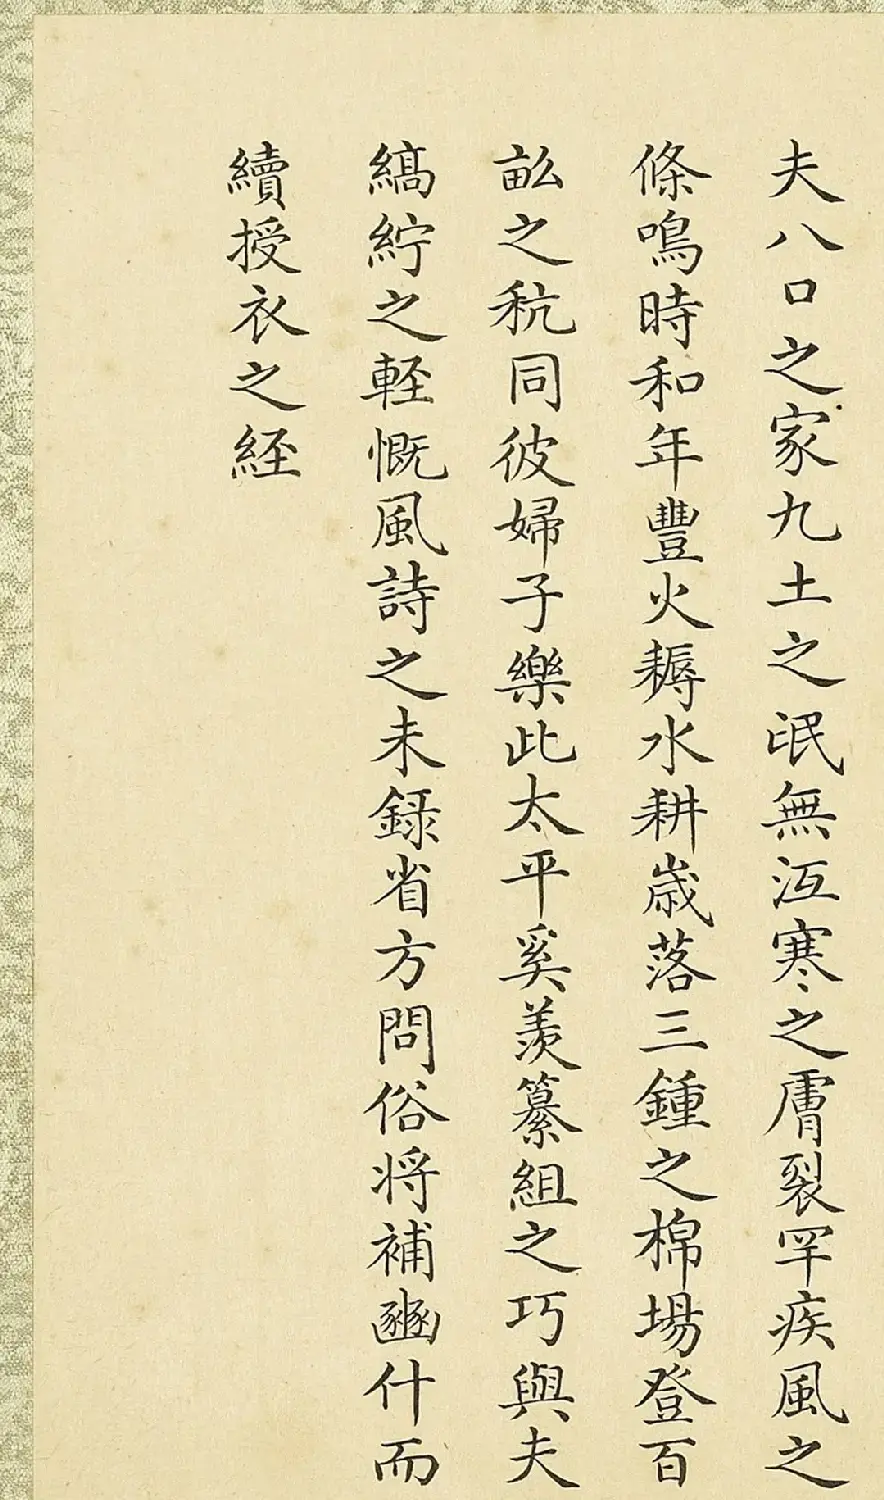 夫八口之家九土之氓無沍寒之膚裂罕疾風之
條鳴時和年豐火耨水耕歲落三鍾之棉場登百
畝之秔同彼婦子樂此太平奚羨纂組之巧與夫
縞紵之輕慨風詩之未錄省方問俗將補豳什而
續授衣之經